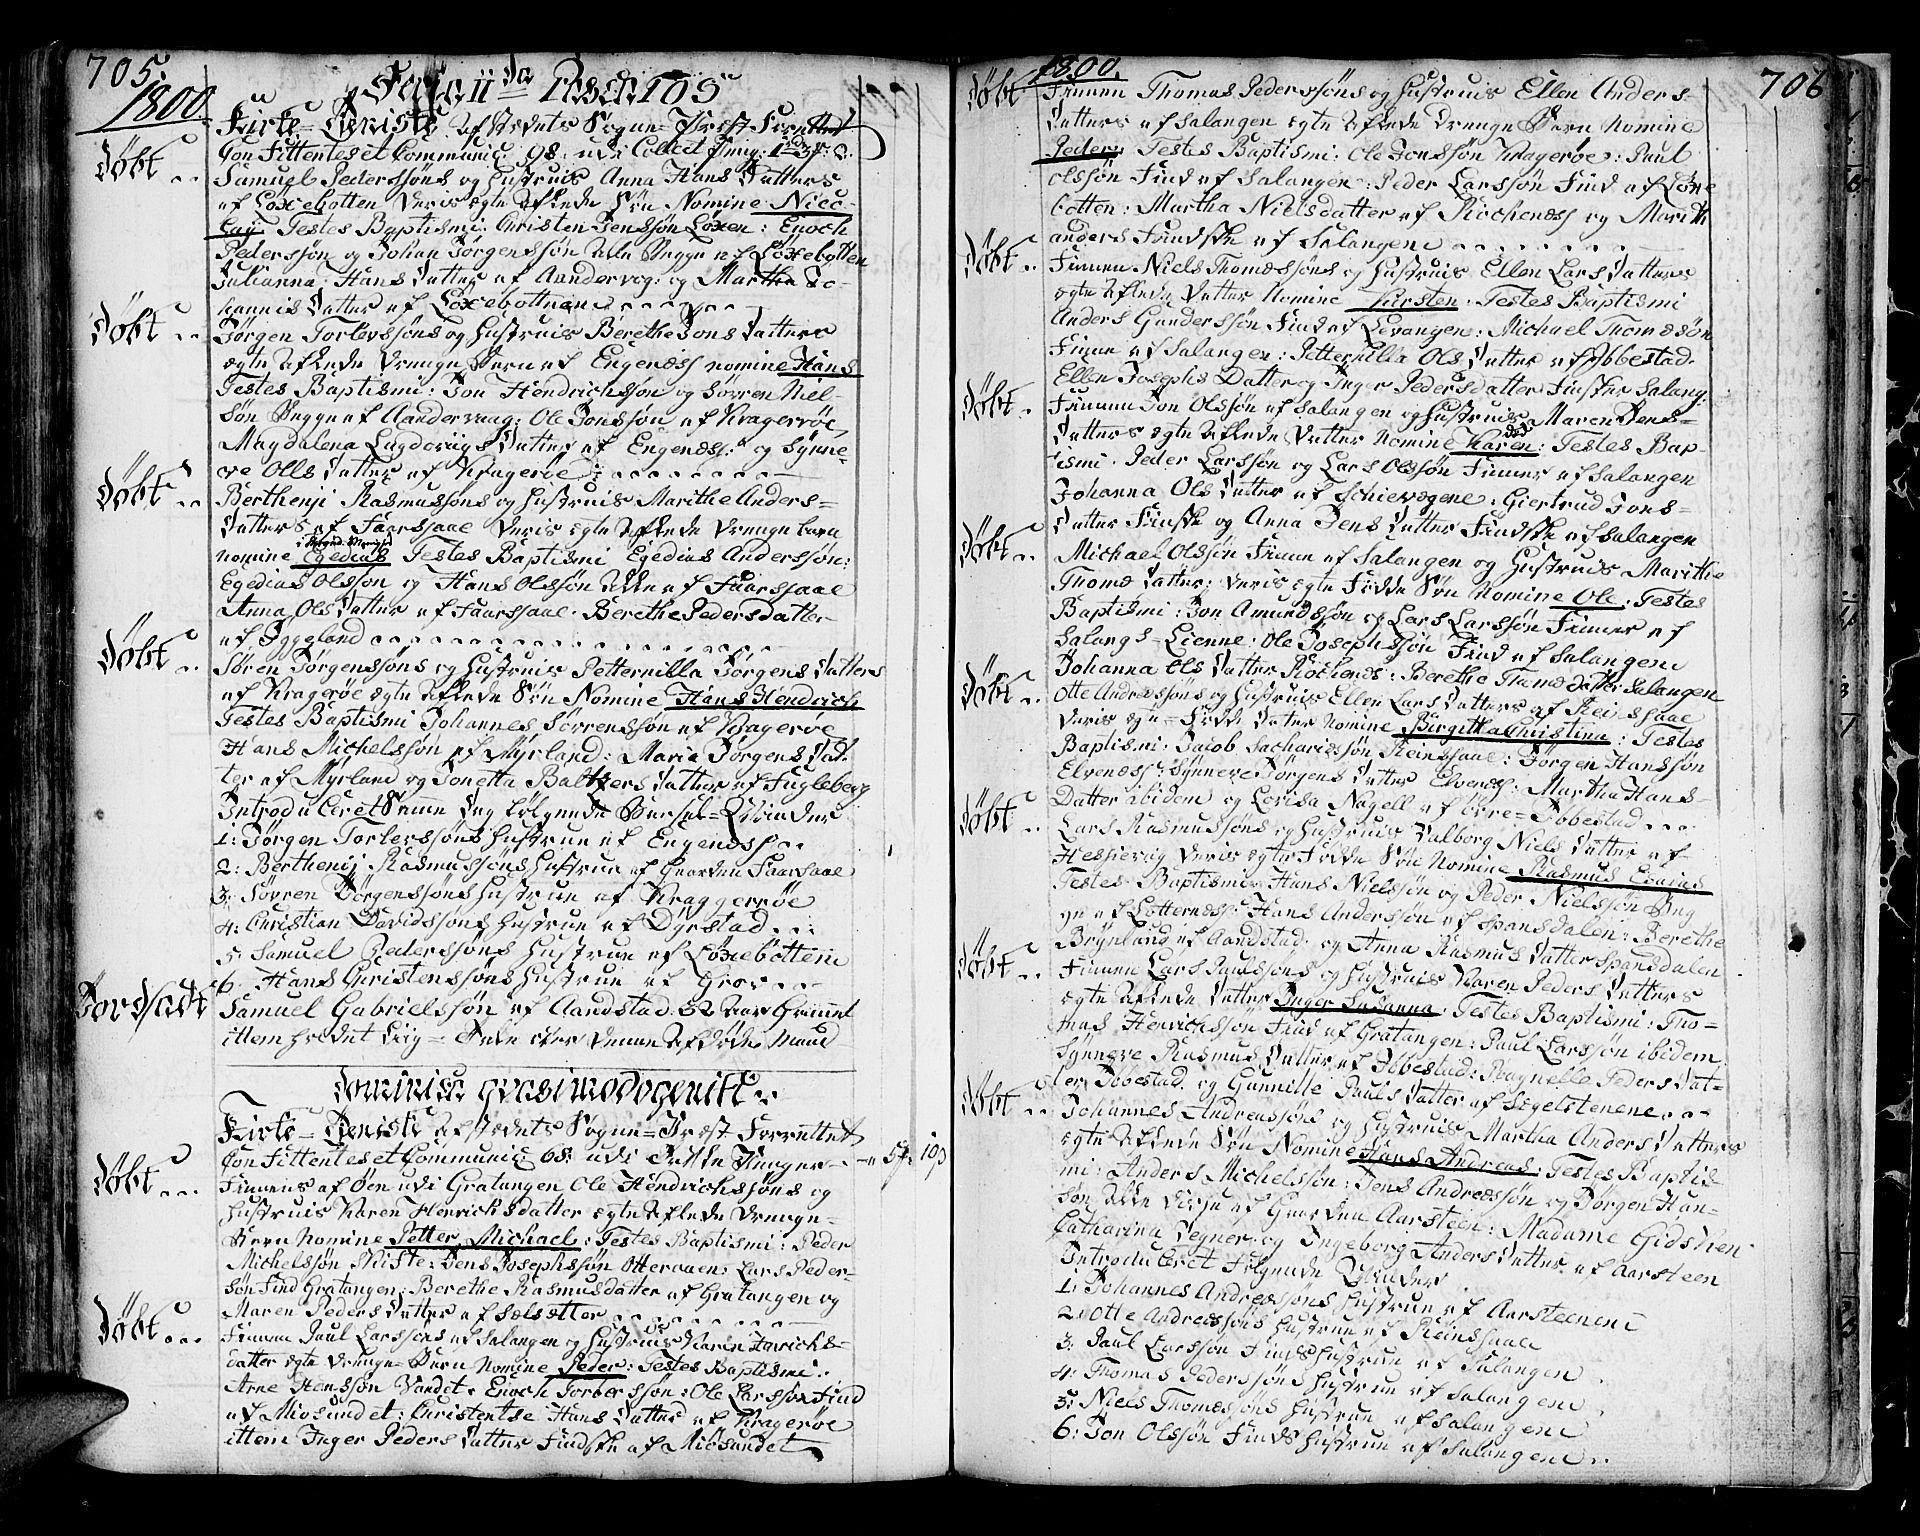 705.
1800.
Feria II da Paschatos
Kirke-Tieniste af stedets Sogne-Præst Forrettet
Confittentes et Communic: 98.
Døbt
Samuel Pederssøns og Hustruis Anna Hans Datters
af Loxebotten Veris egte aflede Søn Nomine Nico-
lay Testes Baptismi: Christen Jenssøn Løxen: Enoch
Pederssøn og Johan Jørgenssøn alle af Løxebotten
Julianna Hans Datter af Aandervog: og Martha Jo-
hannis Datter af Loxebottnen
Døbt
Jørgen Torlevssøns og Hustruis Berethe Jons Datters
egte aflede Drenge Barn af Engenæss nomine Hans
Testes Baptismi: Jon Hendrichssøn og Sørren Niel-
søn begge af Aandervaag: Ole Jonssøn af Kragerøe
Magdalena Lugdovigs Datter af Engenæss: og Synne-
ve Olls Datter af Kragerøe
Døbt
Berthenji Rasmussøns og Hustruis Marithe Anders-
Datters af Faarssaae Veris egte aflede Drenge barn
nomine Egedius Testes Baptismi Egedius Anderssøn:
Egedius Olsson og Hans Olssøn alle af Faarssaae
Anna Ols Datter af Faarssaae. Berethe Peders datter
af Iggeland
Døbt
Søren Jørgenssøns og Hustruis Petternilla Jørgens Datters
af Kragerøe egte aflede Søn Nomine Hans Hendrich
Testes Baptismi Johannes Sørrenssøn af Kragerøe
Hans Michelssøn af Myrland: Marie Jørgens Dat-
ter af Myrland og Jonetta Baltzers Datter af Fugleberg
Introduceret Samme Dag følgende Barsel-Qvinder
1: Jørgen Torlevssøns Hustrue af Engenæss
2: Berthenij Rasmussøns Hustrue af Gaarden Faarsaae
3: Sørren Jørgenssøns Hustrue af Kraggerøe
4: Christian Davidssøns Hustrue af Dyrstad
5: Samuel Pederssøns Hustrue af Løxebotten
6. Hans Christenssøns Hustrue af Grov
Jordsadt
Samuel Gabrielssøn af Aandstad 52 Aar Gammel
ittem holdet Liig-Tale over Denne afdøde Mand
Dominica quasimodogeniti
Kirke-Tieniste af stedets Sogne-Præst Forrettet
Confittentes et Communic 68:
Døbt
Finnens af Øen udi Gratangen Ole Hendrichssøns og
Hustruis Karen Henrichsdatter egte aflede Drenge-
Barn Nomine Petter Michael: Testes Baptismi: Peder
Michelssøn: Jens Josephssøn Otteraaen: Lars Peder-
søn Find Gratangen: Berethe Rasmusdatter af Gratangen og
Maren Peders Datter af Sælsætter
Døbt
Finnen Paul Larssøns af Salangen og Hustruis Karen Henrichs-
datter egte Drenge-Barn Nomine Peder: Testes Baptismi:
Arne Hanssøn Vandet: Enoch Torberssøn: Ole Larssøn Find
af Miøsundet: Christentse Hans Datter af Kragerøe
ittem Inger Peders Datter Findske af Miøsundet
1800.
706
Døbt
Finnen Thomas Pederssøns og Hustruis Ellen Anders-
Datters af Salangen egte aflede Drenge Barn Nomine
Peder: Testes Baptismi: Ole Jonssøn Kragerøe: Paul
Olssøn Find af Salangen: Peder Larssøn Find af Løxe
botten: Martha Nielsdatter af Rochenæss og Marith
Anders Findske af Salangen
Døbt
Finnen Niels Thomæssøns og Hustruis Ellen Lars Datters
egte aflede Datter Nomine Kirsten: Testes Baptismi
Anders Gunderssøn Find af Levangen: Michael Thomæsøn
Finne af Salangen: Petternilla Ols Datter af Ibbestad.
Ellen Josephs Datter og Inger Pedersdatter Finske Salang:
Døbt
Finnen Jon Olssøn af Salangen og Hustruis Maren Jens-
Datters egte aflede Datter Nomine Karen: Testes Bap-
tismi. Peder Larssøn og Lars Olssøn Finner af Salangen
Johanna Ols Datter af Schievogene: Giertrud Jons-
Datter Finske og Anna Jens Datter Findske af Salangen
Døbt
Michael Olssøn Finne af Salangen og Hustruis Marithe
Thomæ Datter: Veris egte Fødde Søn Nomine Ole: Testes
Baptismi: Jon Amundssøn og Lars Larssøn Finner af
Salangs-Eienne: Ole Josephssøn Find af Salangen
Johanna Ols Datter Rochenæs: Berethe Thomæ datter Salangen
Døbt
Otte Andreæssøns og Hustruis Ellen Lars Datters af Reinssaae
Veris egte-Fødde Datter Nomine Birgitha Christina: Testes
Baptismi: Jacob Sachariæssøn Reinssaae: Jørgen Hanssøn
Elvenæss: Synneve Jørgens Datter Elvenæss: Martha Hans-
Datter ibidem og Lovisa Nagell af Øvre-Ibbestad
Døbt
Lars Rasmussøns og Hustruis Valborg Niels Datter af
Hessievog Veris egte Fødde Søn Nomine Rasmus
Testes Baptismi: Hans Nielssøn og Peder Nielssøn Beg
ge af Lotternæss: Hans Anderssøn af Spansdalen: Berethe
Brynlund af Aandstad: og Anna Rasmus Datter Spansdalen
Døbt
Finnen Lars Paulssøns og Hustruis Karen Peders Datters
egte aflede Datter Inger Susanna: Testes Baptismi: Tho-
mas Henrichssøn Find af Gratangen: Paul Larssøn ibidem
Synneve Rasmus Datter af Ibbestad: Ragnelle Peders Dat-
ter Ibbestad. og Gunnille Pauls Datter af Segelstenene
Døbt
Johannes Andreæssøns og Hustruis Martha Anders Datters
egte aflede Søn Nomine Hans Andreas: Testes Baptis-
mi: Anders Michelssøn: Jens Andreæssøn og Jørgen Han-
søn alle Disse af Gaarden Aarsteen: Madame Gidsken
Catharina Degner og Ingeborg Anders Datter af Aarsteen
Introduceret Følgende Qvinder
1: Johannes Andreæssøns Hustrue af Aarsteenen
2: Otte Andreæssøns Hustrue af Reinssaae
3: Paul Larssøn Finds Hustrue af Salangen
4: Thomas Pederssøns Hustrue af Salangen
5: Niels Thomæssøns Hustrue af Salangen
6: Jon Olssøn Finds Hustrue af Salangen